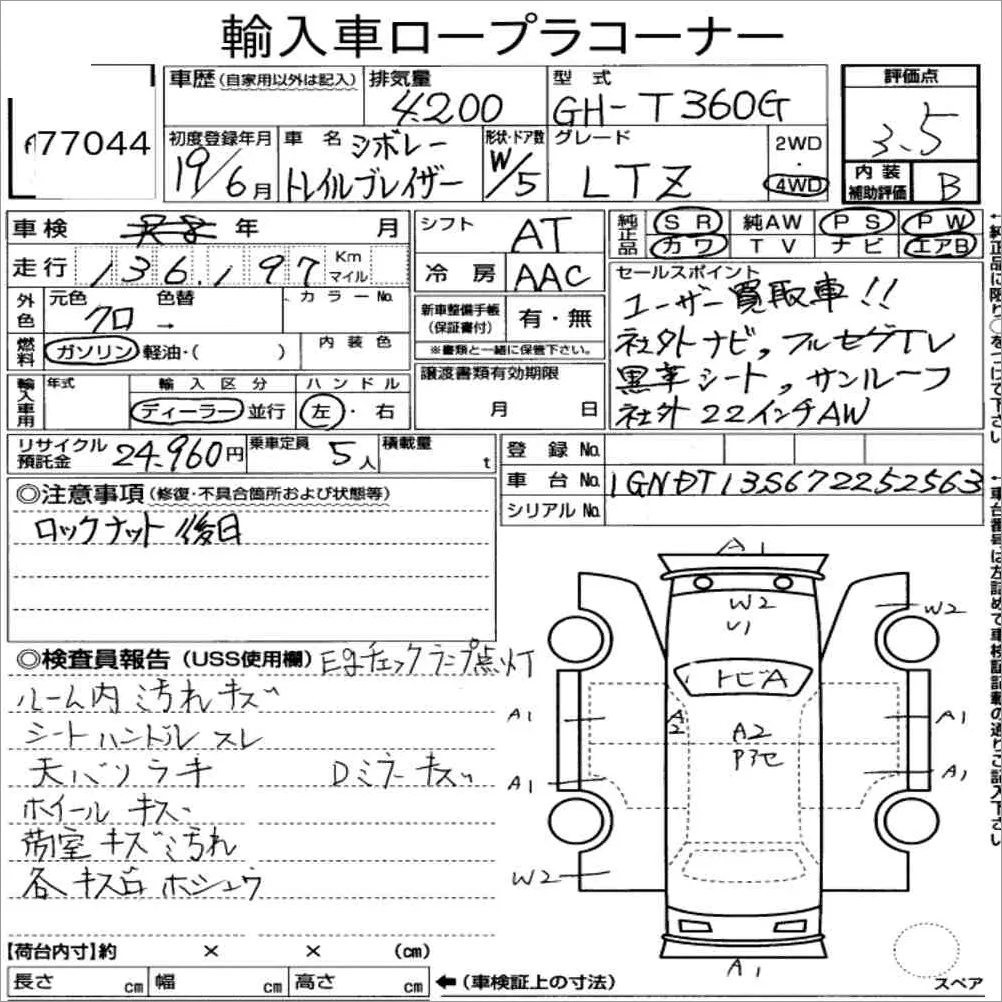 輸入車ロープラコーナー
77044
車歴 (自家用以外は記入)
排気量 4200
型式 GH-T360G
評価点 3.5
初度登録年月 19/6月
車名 シボレー
トレイルブレイザー
形状・ドア数 W/5
グレード LTZ
2WD
・
4WD
内装
補助評価 B
車検 年 月
走行 136,197 Km
マイル
シフト AT
冷房 AAC
純正品 SR 純AW PS PW
カワ TV ナビ エアB
外色 元色 クロ → 色替 カラーNo.
燃料 ガソリン 軽油・( ) 内装色
新車整備手帳
(保証書付) 有・無
※書類と一緒に保管下さい。
セールスポイント
ユーザー買取車!!
社外ナビ, フルセグTV
黒革シート, サンルーフ
社外22インチAW
輸入車用 年式 輸入区分 ハンドル
ディーラー 並行 左・右
譲渡書類有効期限
月 日
リサイクル
預託金 24,960円
乗車定員 5人
積載量 t
登録No.
車台No. 1GNDT13S672252563
シリアルNo.
◎注意事項 (修復・不具合箇所および状態等)
ロックナット後日
◎検査員報告 (USS使用欄) Egチェックランプ点灯
ルーム内汚れキズ
シートハンドルスレ
天バリラキ Dミラーキズ
ホイールキズ
荷室キズ汚れ
各キズ凹ホシュウ
A1
W2
U1
W2
トビA
A1
A2
A2
Pアセ
A1
A1
A1
W2
A1
スペア
【荷台内寸】約 × × (cm)
長さ cm 幅 cm 高さ cm
←(車検証上の寸法)
↑純正品に限り○をつけて下さい
↑車台番号は左詰めで車検証記載の通りご記入下さい